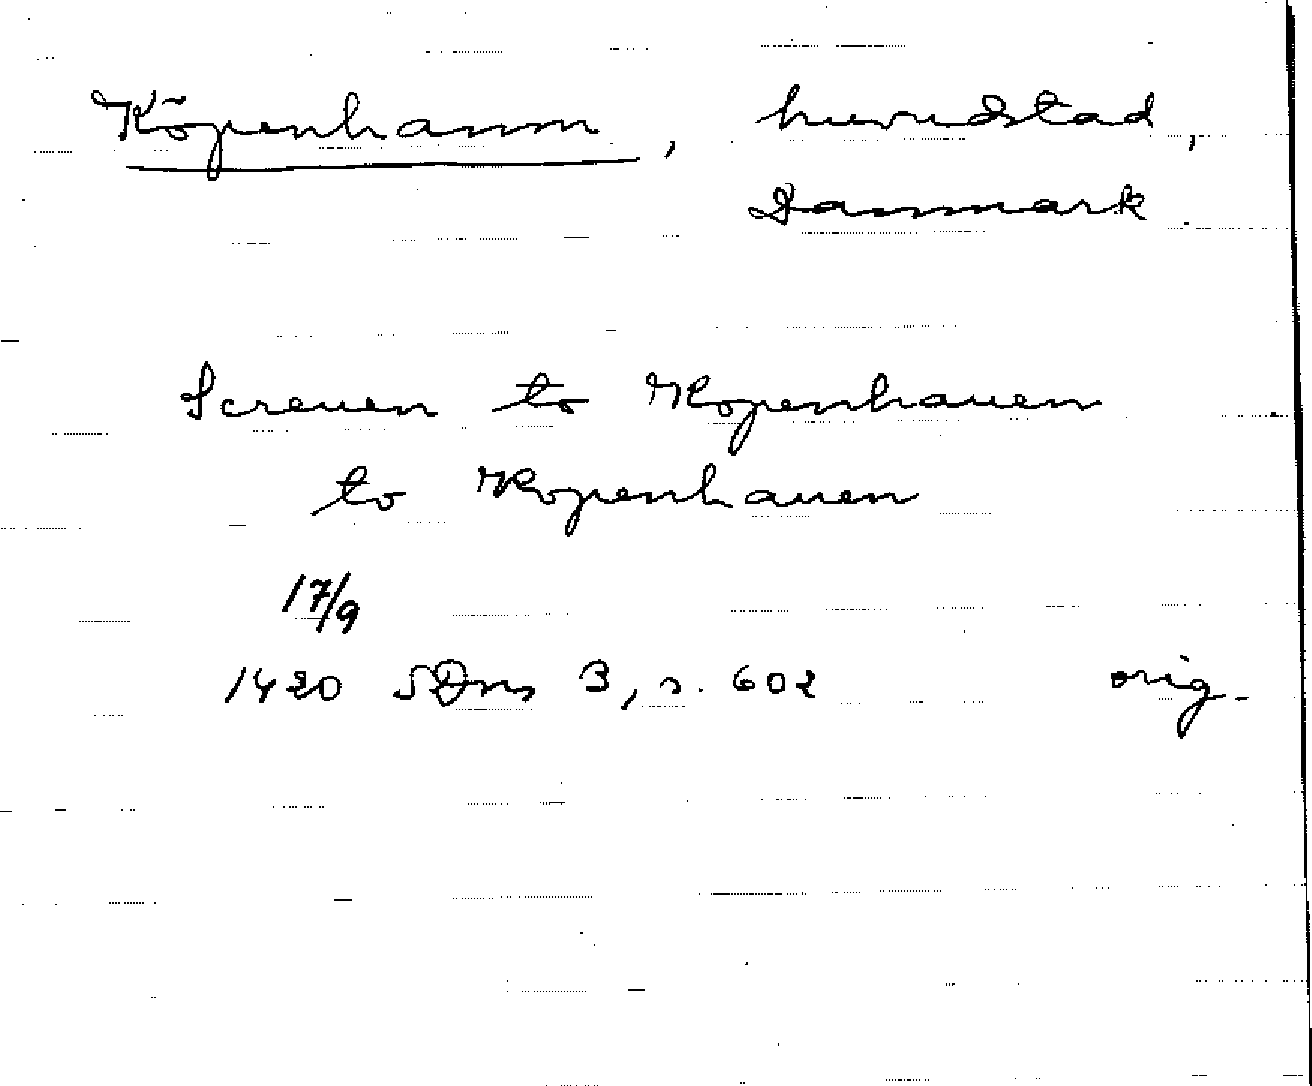 Köpenhamn, huvudstad,
Danmark
Screuen to Kopenhauen
to Kopenhauen
17/9
1420 SDns 3, s. 602 orig.